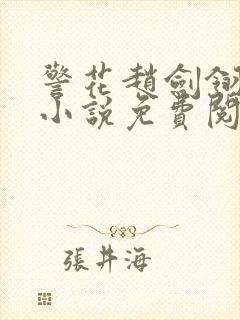 警花趙劍釵
小說免費閱
張井海